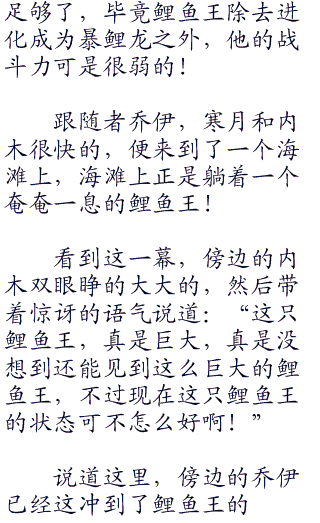 足够了，毕竟鲤鱼王除去进
化成为暴鲤龙之外，他的战
斗力可是很弱的！
跟随者乔伊，寒月和内
木很快的，便来到了一个海
滩上，海滩上正是躺着一个
奄奄一息的鲤鱼王！
看到这一幕，傍边的内
木双眼睁的大大的，然后带
着惊讶的语气说道：“这只
鲤鱼王，真是巨大，真是没
想到还能见到这么巨大的鲤
鱼王，不过现在这只鲤鱼王
的状态可不怎么好啊！”
说道这里，傍边的乔伊
已经这冲到了鲤鱼王的